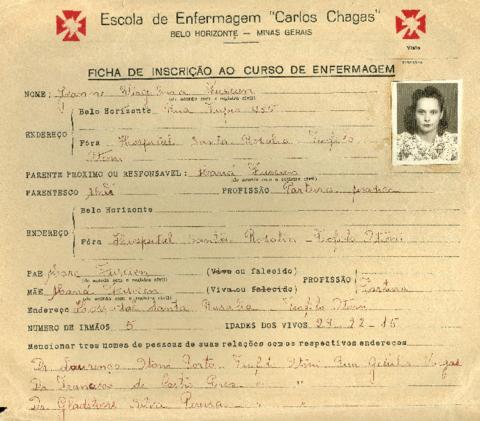 Escola de Enfermagem "Carlos Chagas"
BELO HORIZONTE — MINAS GERAIS
Visto
FICHA DE INSCRIÇÃO AO CURSO DE ENFERMAGEM
NOME:
(de acordo com o registro civil)
ENDEREÇO
Belo Horizonte Rua
Fóra Hospital Santa Rosalia - Teofilo
Otoni
PARENTE PROXIMO OU RESPONSAVEL: Maria
(de acordo com o registro civil)
PARENTESCO Mãe PROFISSÃO Parteira pratica
ENDEREÇO
Belo Horizonte
Fóra Hospital Santa Rosalia - Teofilo Otoni
PAE (Vivo ou falecido) PROFISSÃO
(de acordo com o registro civil)
MÃE Maria (Viva ou falecida) Parteira
(de acordo com o registro civil)
Endereço Hospital Santa Rosalia Teofilo Otoni
NUMERO DE IRMÃOS 5 IDADES DOS VIVOS 24-22-15
Mencionar tres nomes de pessoas de suas relações com os respectivos endereços
Dr. Lourenço Otoni Porto - Teofilo Otoni Rua Getulio Vargas
Dr. Francisco de Castro Pires " "
Dr. Gladstone Silva Pereira " "